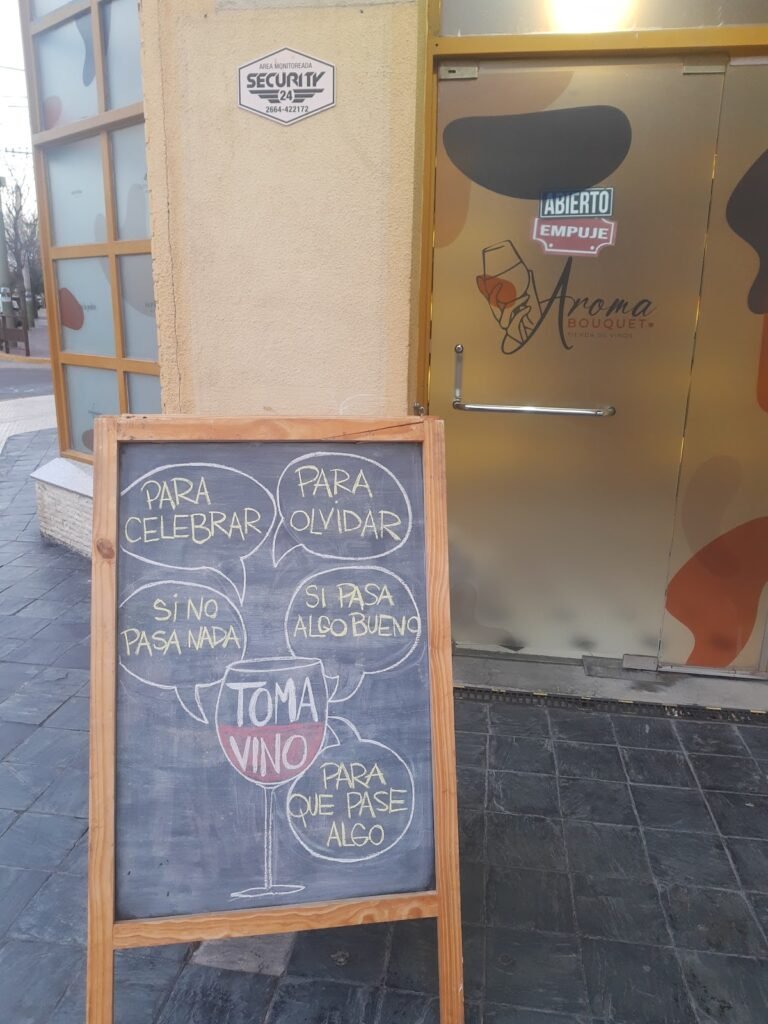 AREA MONITOREADA
SECURITY
24
2664-422172
ABIERTO
EMPUJE
Aroma
BOUQUET
TIENDA DE VINOS
PARA
CELEBRAR
PARA
OLVIDAR
SI NO
PASA NADA
SI PASA
ALGO BUENO
TOMA
VINO
PARA
QUE PASE
ALGO